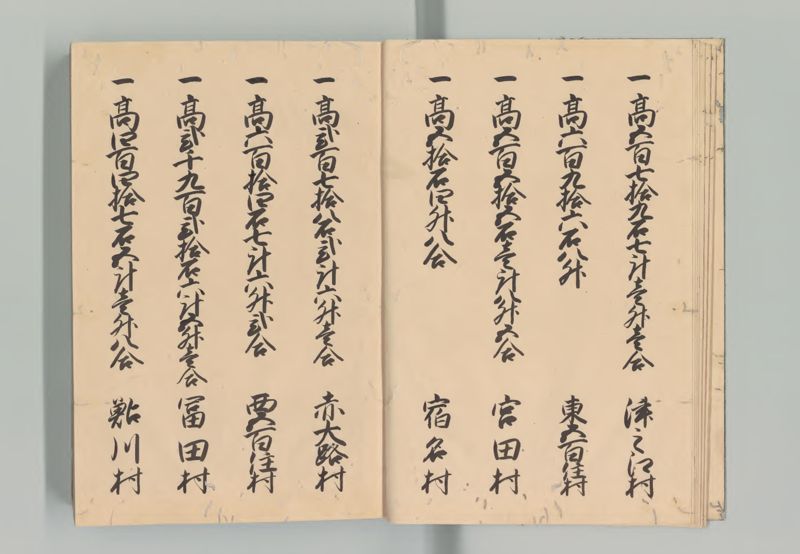 一高五百七拾九石七斗壱升壱合 津之江村
一高六百九拾六石八升 東五百住村
一高五百五拾五石壱斗八升五合 宮田村
一高五拾石四升八合 宿名村
一高弐百七拾八石弐斗六升壱合 赤大路村
一高六百拾四石七斗六升弐合 西五百住村
一高弐千九百弐拾石六斗五升壱合 冨田村
一高四百四拾七石五斗壱升八合 鮎川村